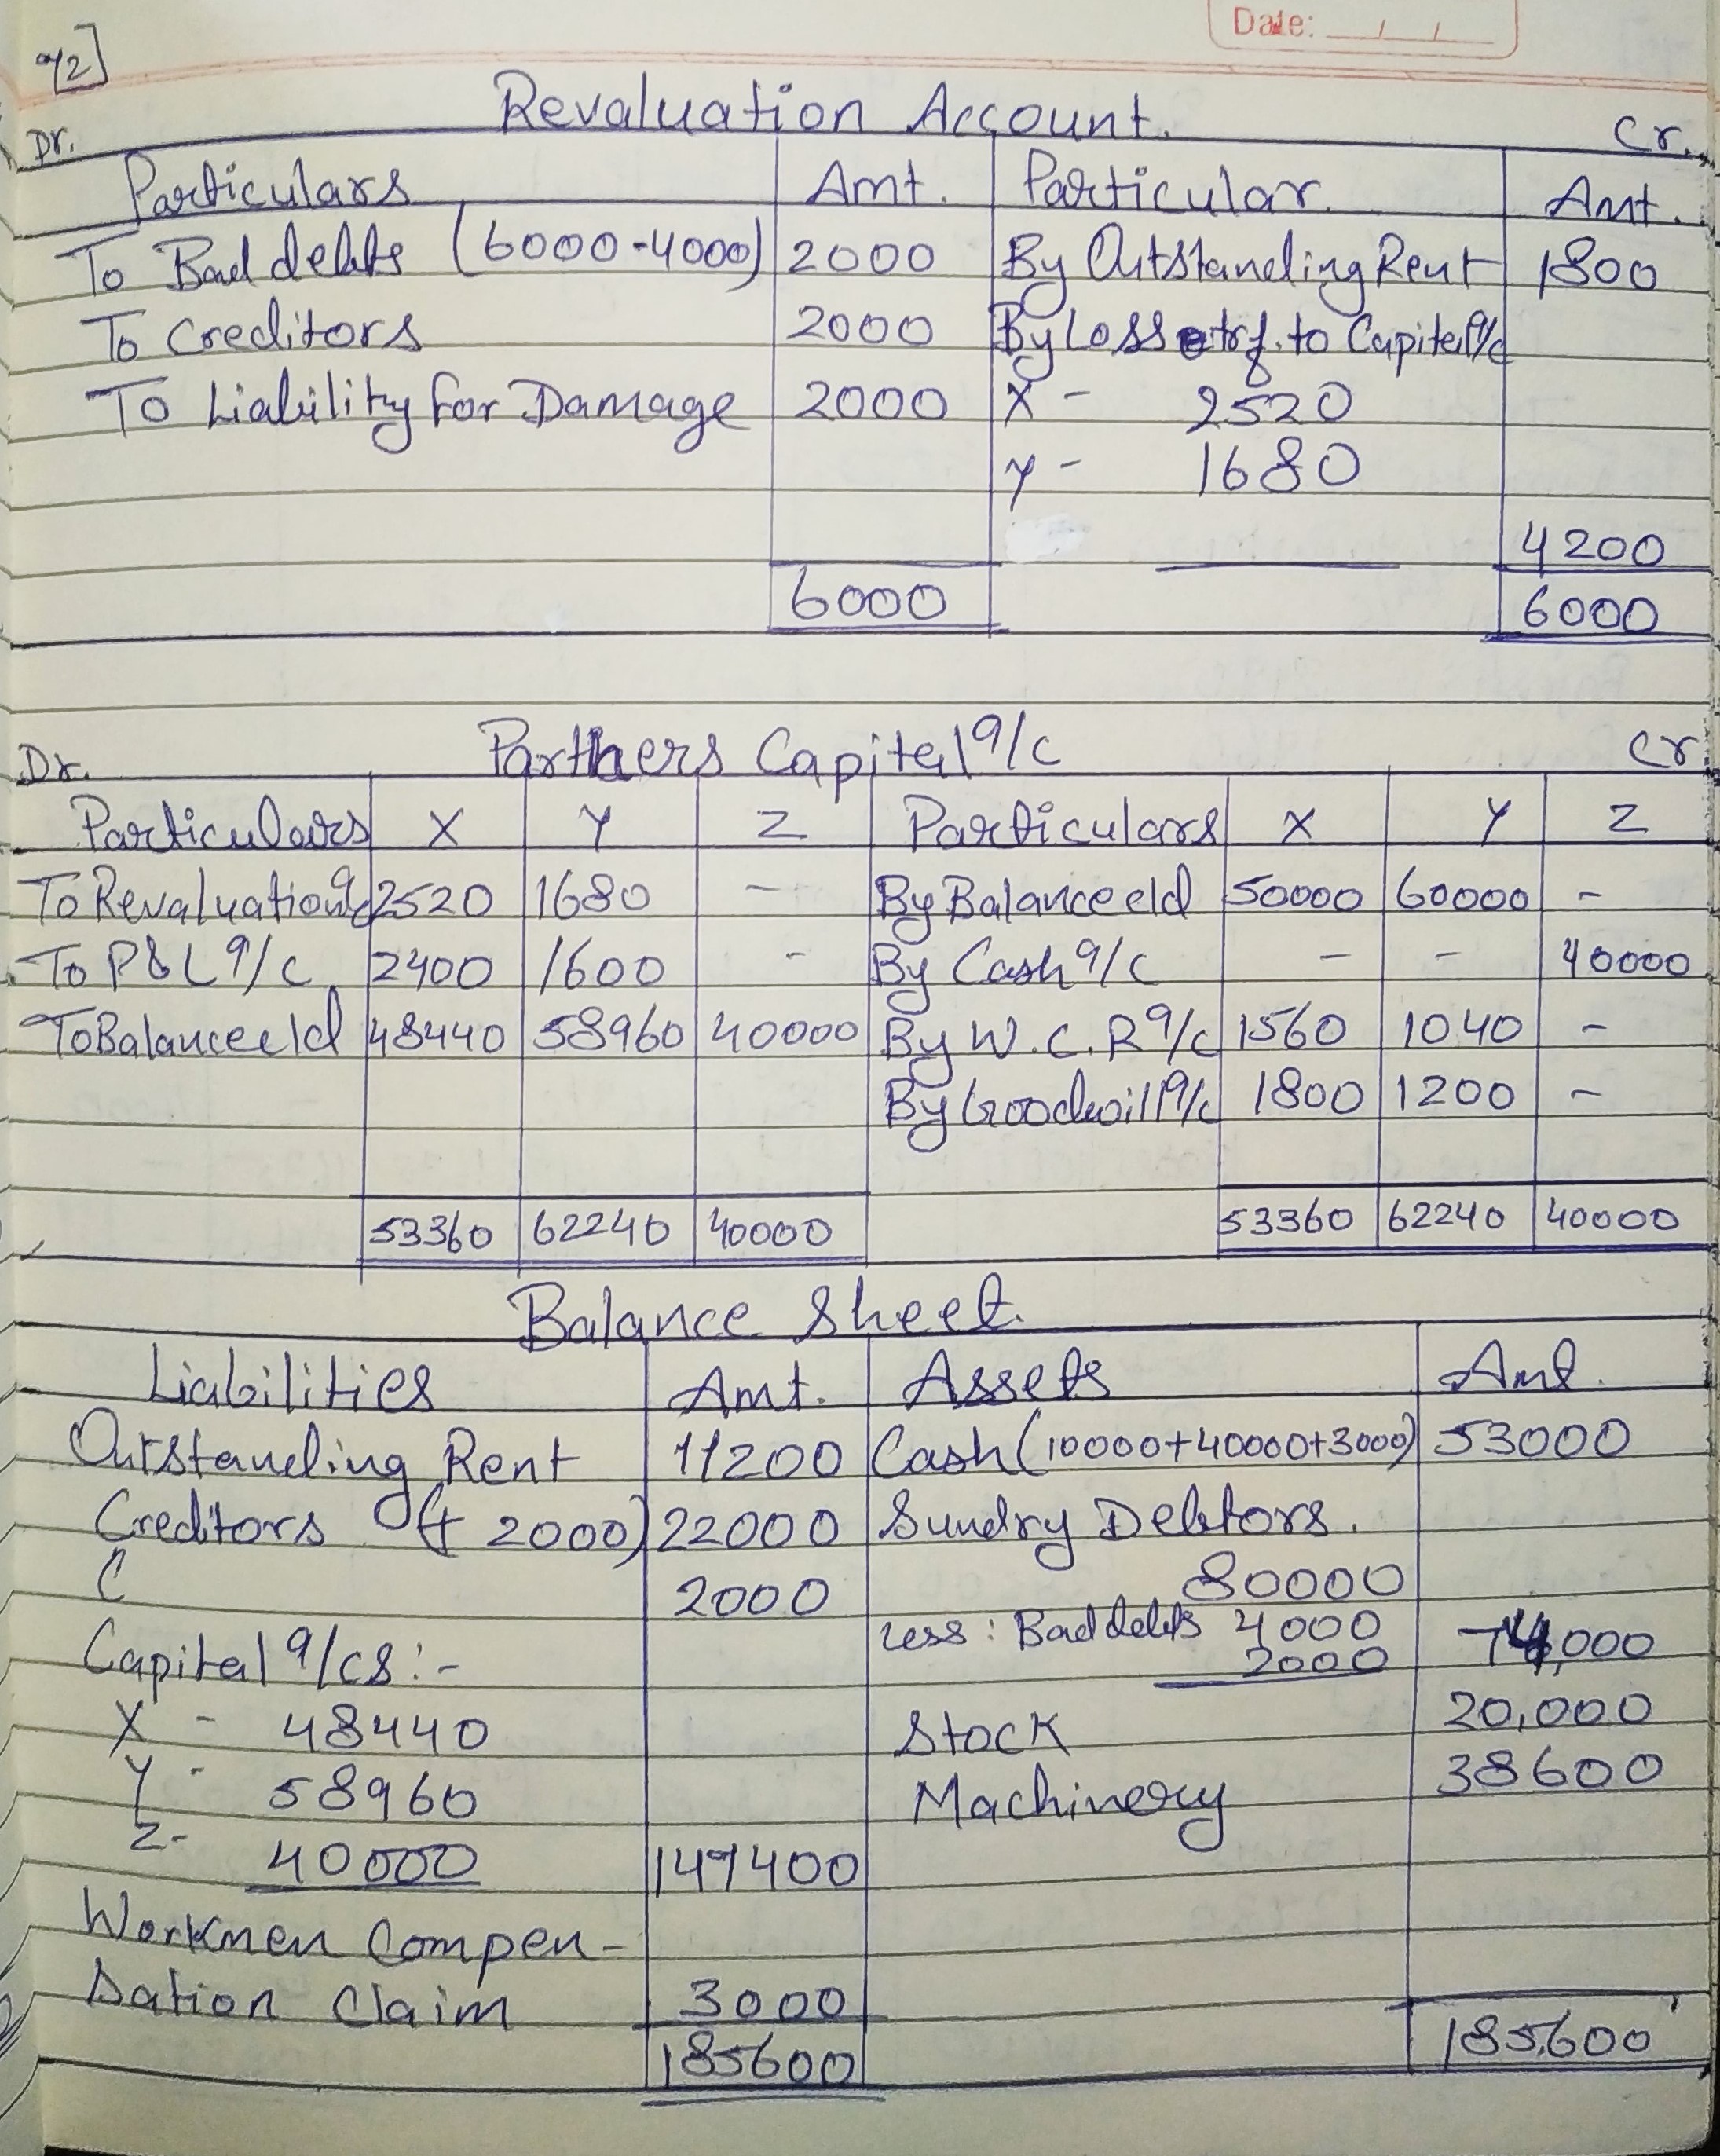 Date: __/__/__
92]
Revaluation Account.
Dr. Cr.
Particulars Amt. Particular. Amt.
To Bad debts (6000-4000) 2000 By Outstanding Rent 1800
To Creditors 2000 By Loss trf. to Capital a/c
To Liability for Damage 2000 X - 2520
Y - 1680
4200
6000 6000
Partners Capital a/c
Dr. Cr
Particulars X Y Z Particulars X Y Z
To Revaluation a/c 2520 1680 - By Balance c/d 50000 60000 -
To P&L a/c 2400 1600 - By Cash a/c - - 40000
To Balance c/d 48440 58960 40000 By W.C.R a/c 1560 1040 -
By Goodwill a/c 1800 1200 -
53360 62240 40000 53360 62240 40000
Balance Sheet.
Liabilities Amt. Assets Amt.
Outstanding Rent 11200 Cash (10000+40000+3000) 53000
Creditors (+ 2000) 22000 Sundry Debtors.
C 2000 80000
Less: Bad debts 4000
2000 74,000
Capital a/cs:-
X - 48440 Stock 20,000
Y - 58960 Machinery 38600
Z- 40000 147400
Workmen Compen-
sation Claim 3000
185600 185,600